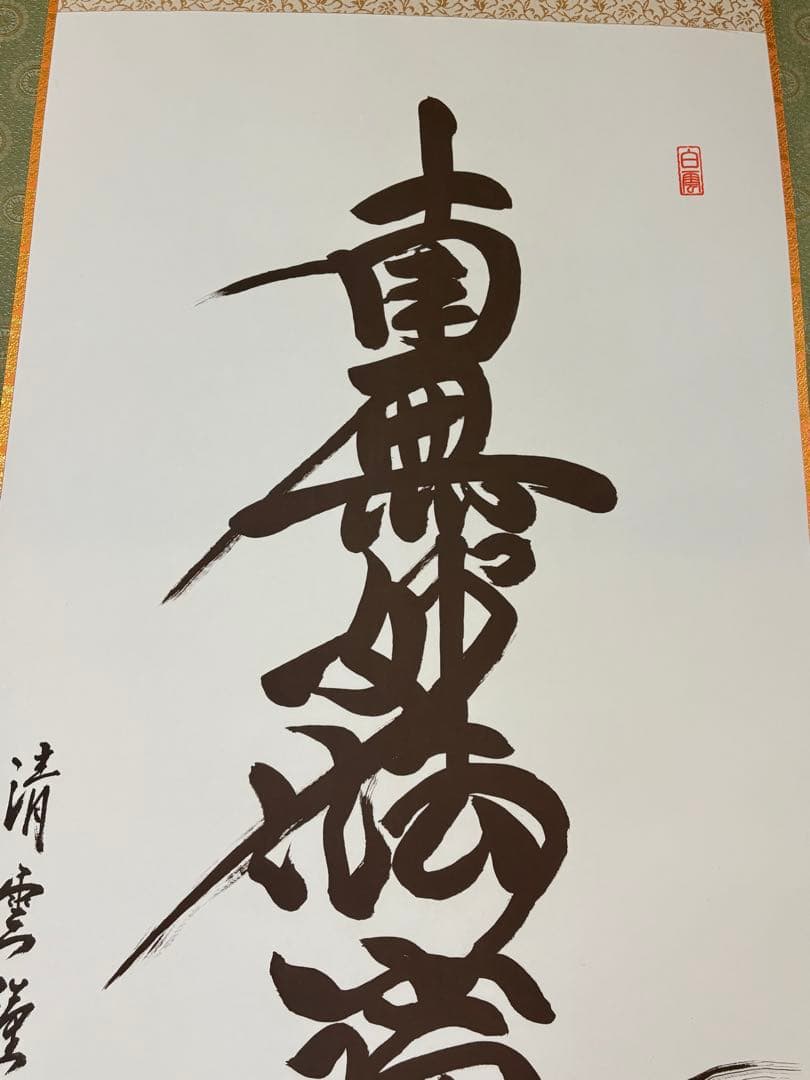 白雲
南無妙法蓮
清雲謹